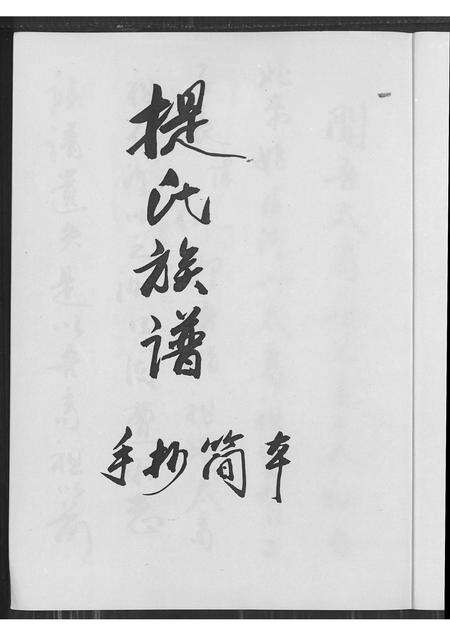 提氏族谱
手抄简本